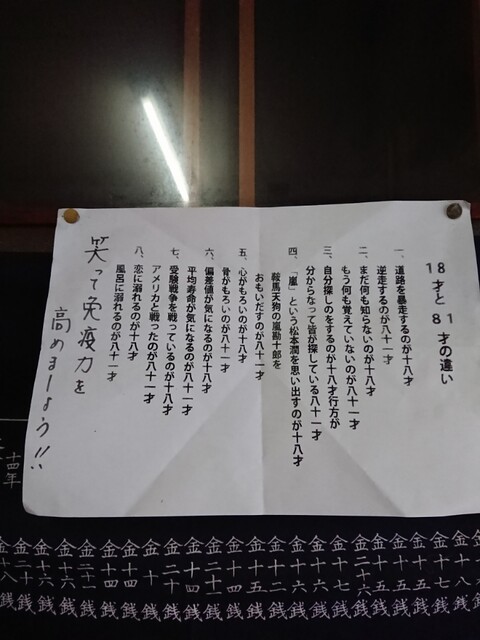 18才と81才の違い
一、道路を暴走するのが十八才
逆走するのが八十一才
二、まだ何も知らないのが十八才
もう何も覚えていないのが八十一才
三、自分探しのをするのが十八才行方が
分からなって皆が探している八十一才
四、「嵐」という松本潤を思い出すのが十八才
鞍馬天狗の嵐勘十郎を
おもいだすのが八十一才
五、心がもろいのが十八才
骨がもろいのが八十一才
六、偏差値が気になるのが十八才
平均寿命が気になるのが八十一才
七、受験戦争を戦っているのが十八才
アメリカと戦ったのが八十一才
八、恋に溺れるのが十八才
風呂に溺れるのが八十一才
笑って免疫力を
高めましょう!!
十四年
金十七銭
金十五銭
金十五銭
金二十六銭
金十七銭
金十六銭
金十六銭
金十二銭
金十五銭
金二十一銭
金十四銭
金二十銭
金十銭
金十四銭
金十四銭
金二十一銭
金十六銭
金二十銭
金十八銭